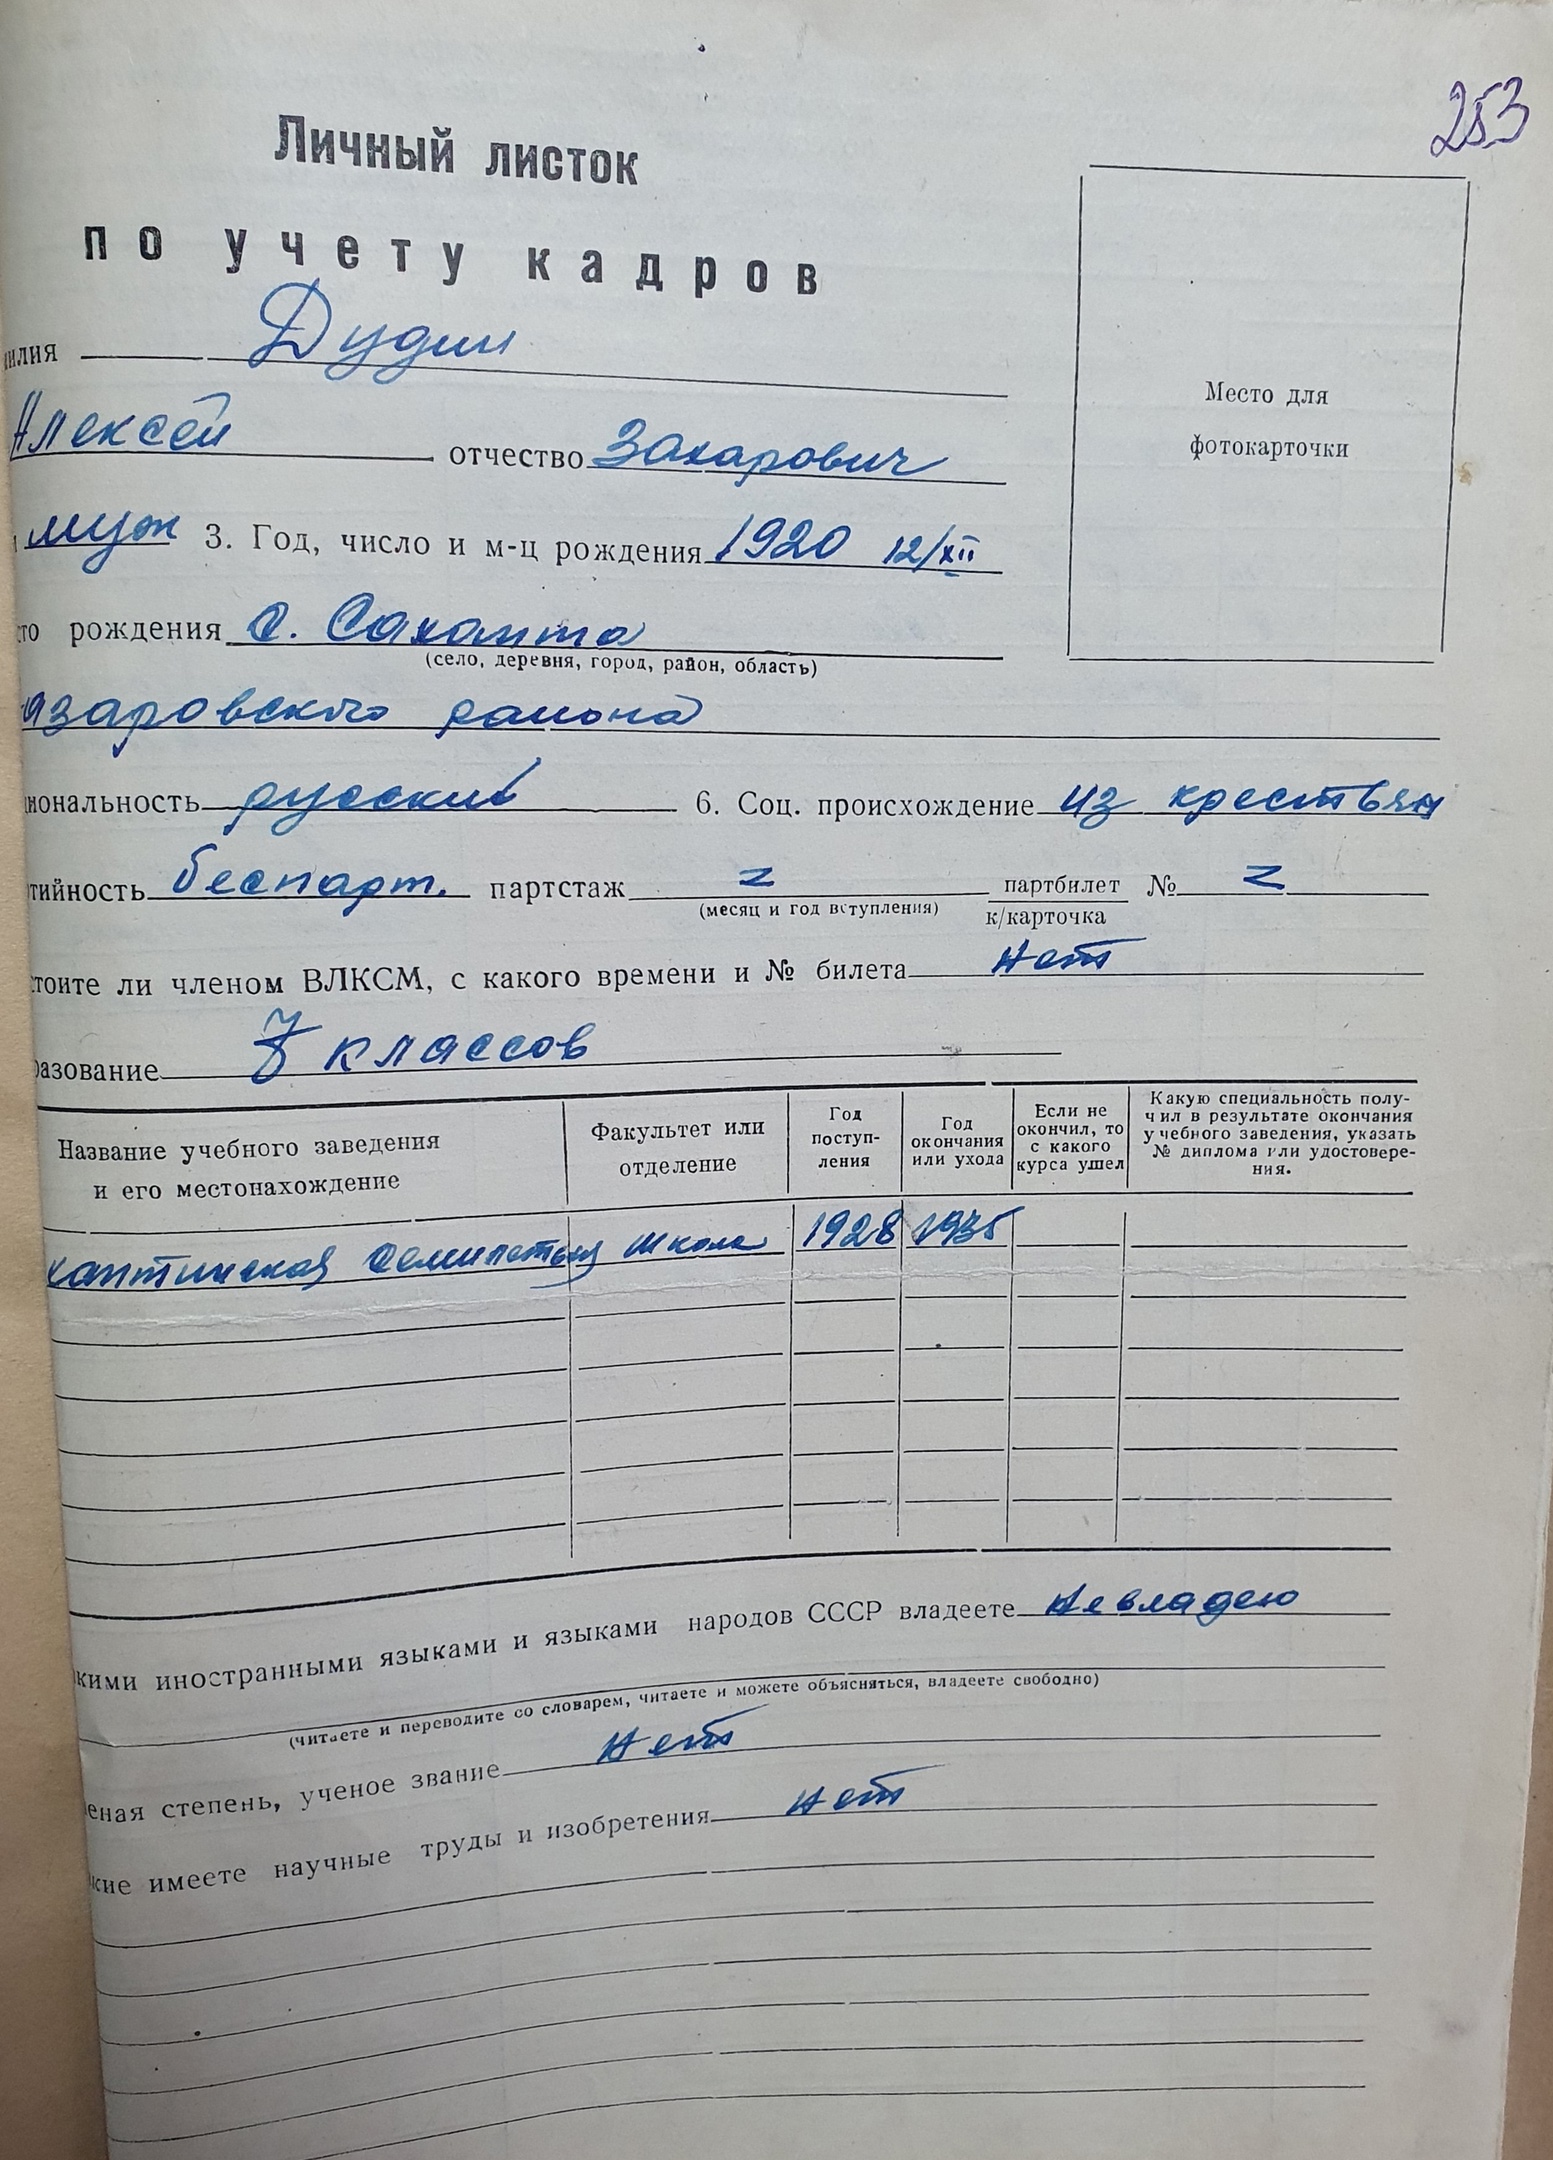 253
Личный листок
по учету кадров
милия Дудин
Алексей отчество Захарович
муж 3. Год, число и м-ц рождения 1920 12/XII
сто рождения с. Сахапта
(село, деревня, город, район, область)
азаровского района
иональность русский 6. Соц. происхождение из крестьян
тийность беспарт. партстаж z партбилет № z
(месяц и год вступления) к/карточка
стоите ли членом ВЛКСМ, с какого времени и № билета нет
разование 7 классов
Название учебного заведения и его местонахождение Факультет или отделение Год поступ-ления Год окончания или ухода Если не окончил, то с какого курса ушел Какую специальность полу-чил в результате окончания учебного заведения, указать № диплома или удостовере-ния.
хаптинская семилетняя школа 1928 1935
кими иностранными языками и языками народов СССР владеете не владею
(читаете и переводите со словарем, читаете и можете объясняться, владеете свободно)
еная степень, ученое звание нет
кие имеете научные труды и изобретения нет
Место для
фотокарточки